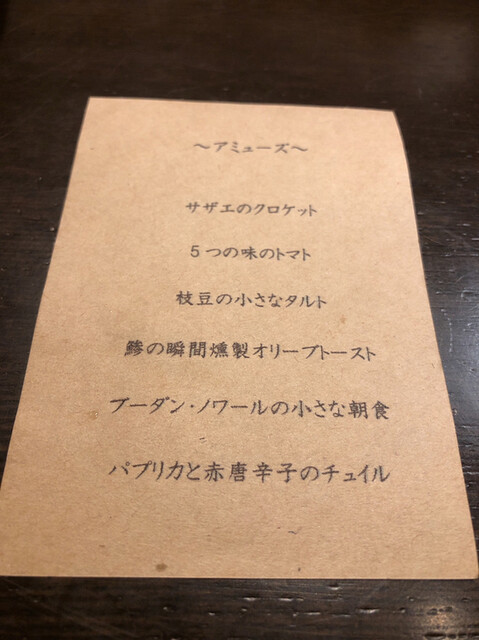 ～アミューズ～
サザエのクロケット
５つの味のトマト
枝豆の小さなタルト
鯵の瞬間燻製オリーブトースト
ブーダン・ノワールの小さな朝食
パプリカと赤唐辛子のチュイル